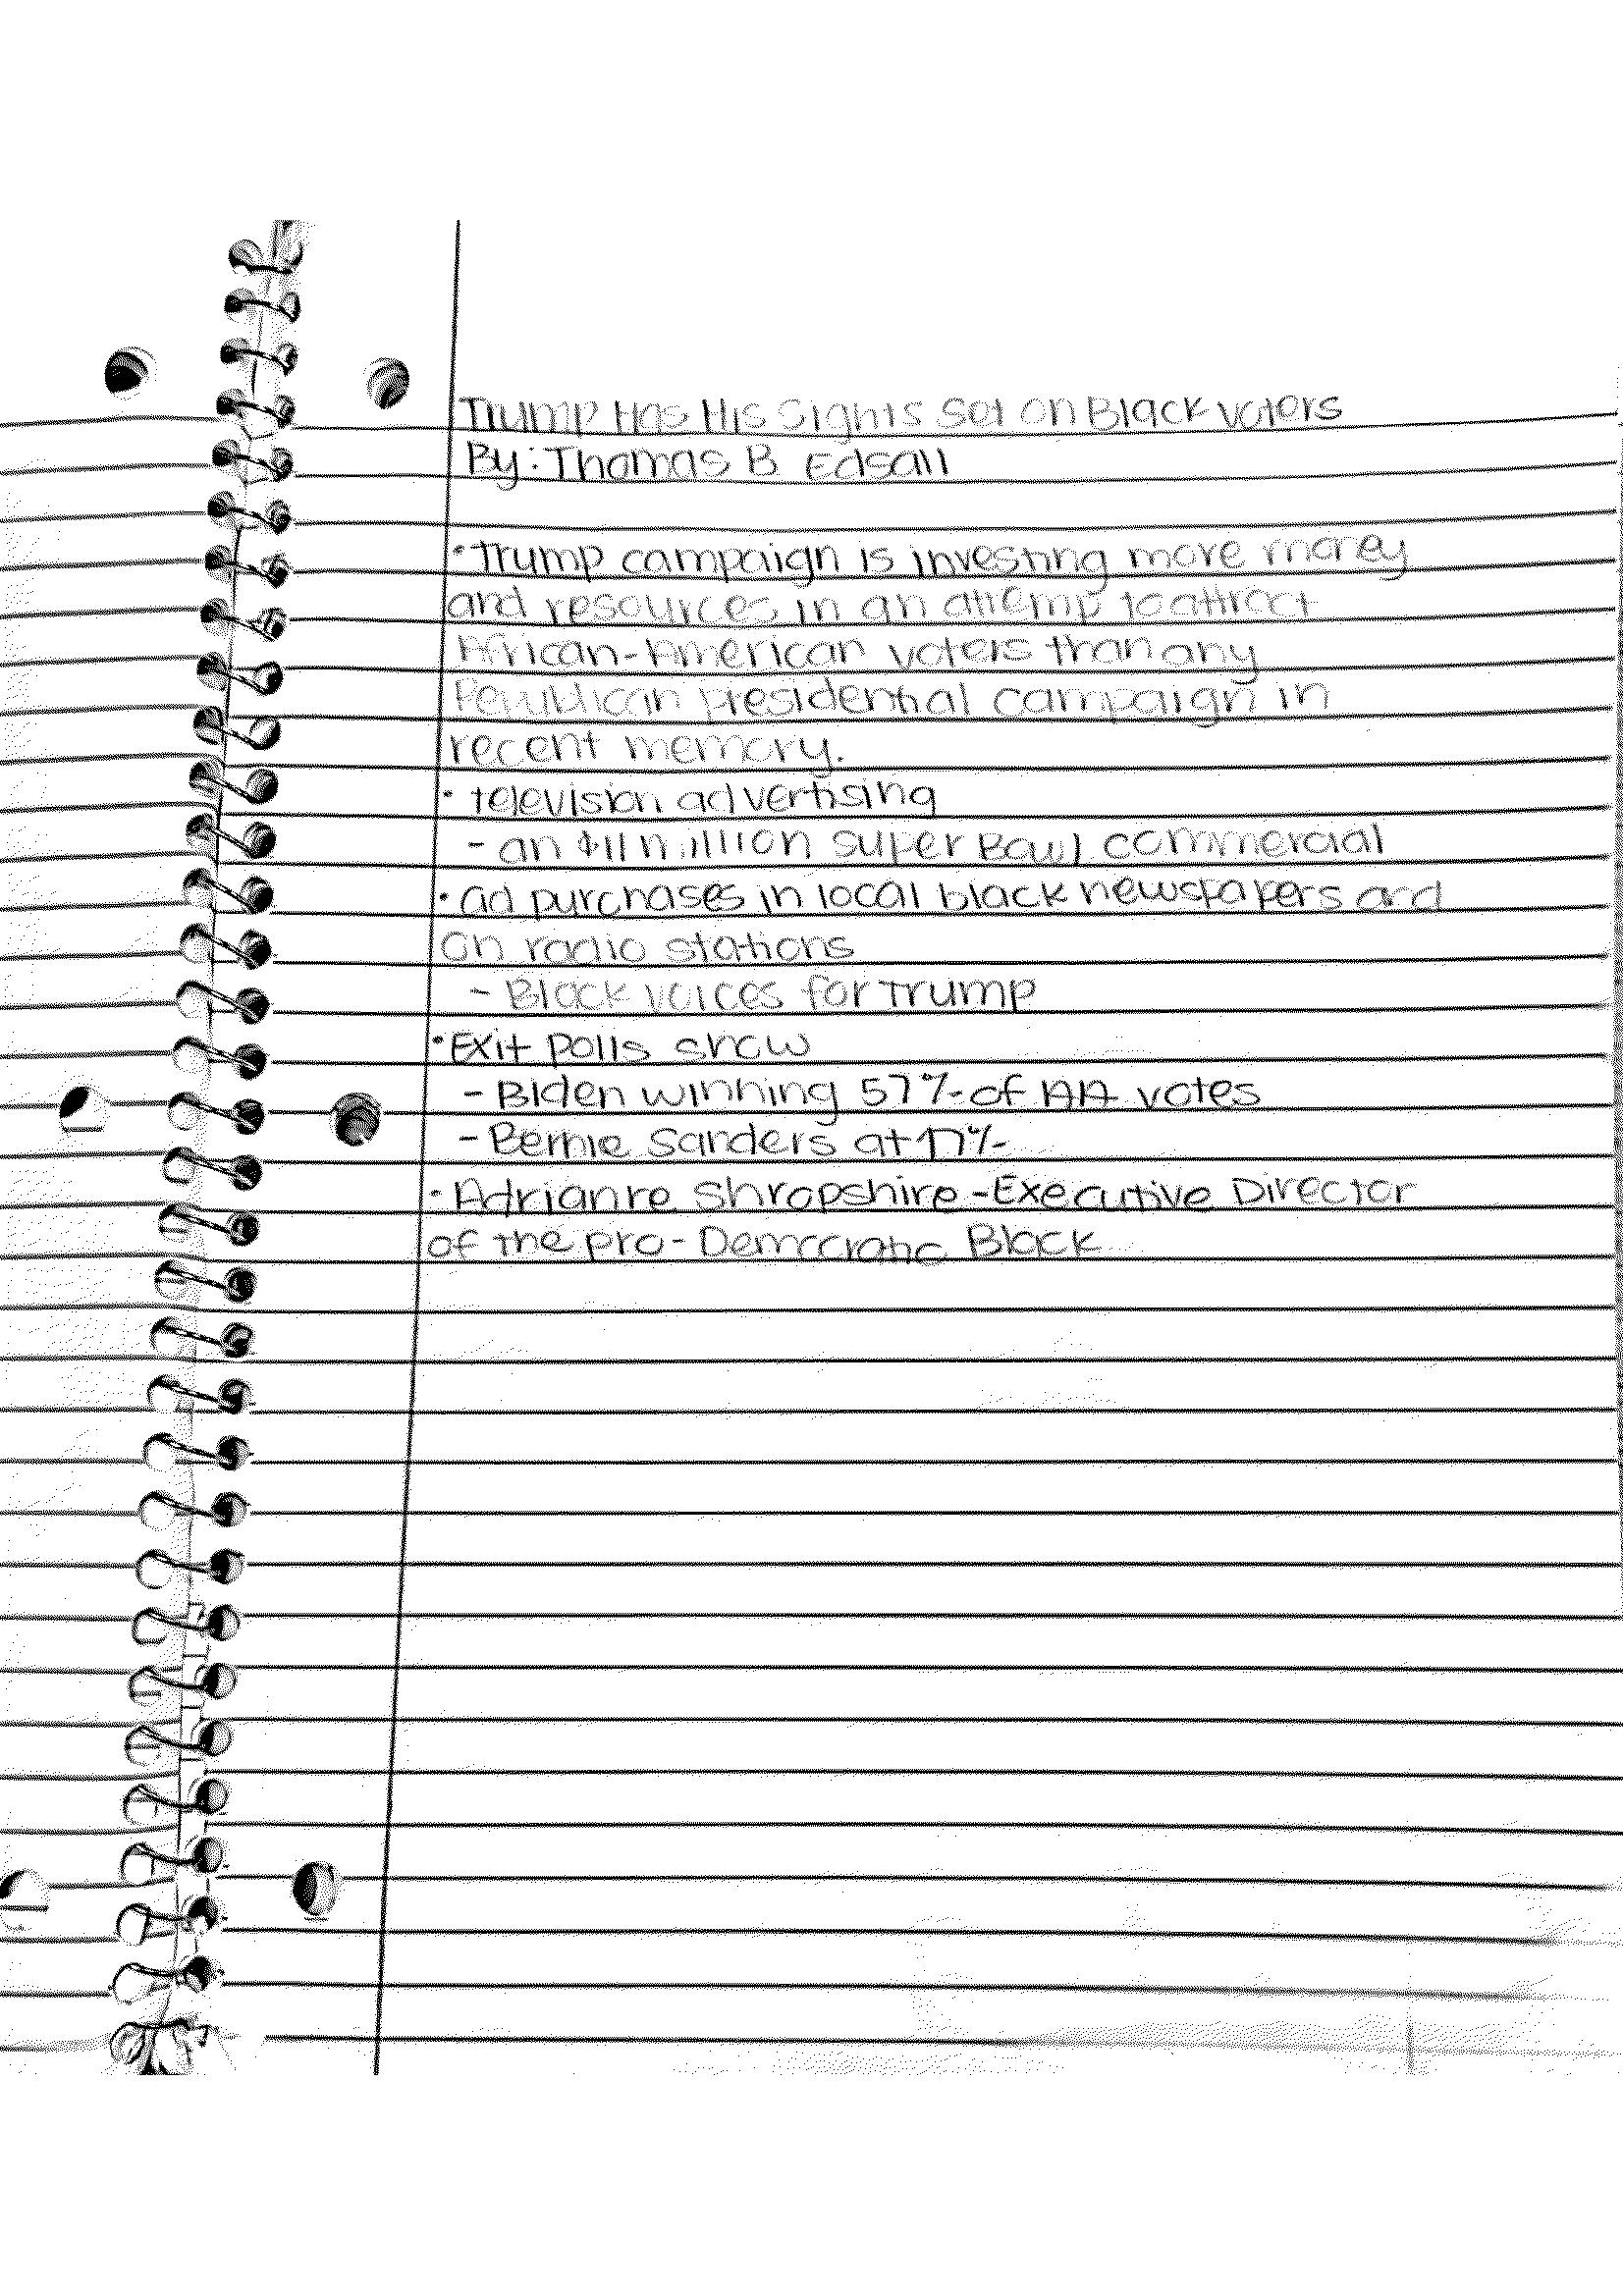 Trump Has His Sights Set On Black Voters
By: Thomas B. Edsall
• Trump campaign is investing more money
and resources in an attemp to attract
African-American voters than any
Republican presidential campaign in
recent memory.
• television advertising
- an $11 million super Bowl commercial
• ad purchases in local black newspapers and
on radio stations
- Black voices for Trump
• Exit polls show
- Biden winning 57% of AA votes
- Bernie Sanders at 17%
• Adrianne Shropshire - Executive Director
of the pro-Democratic Black